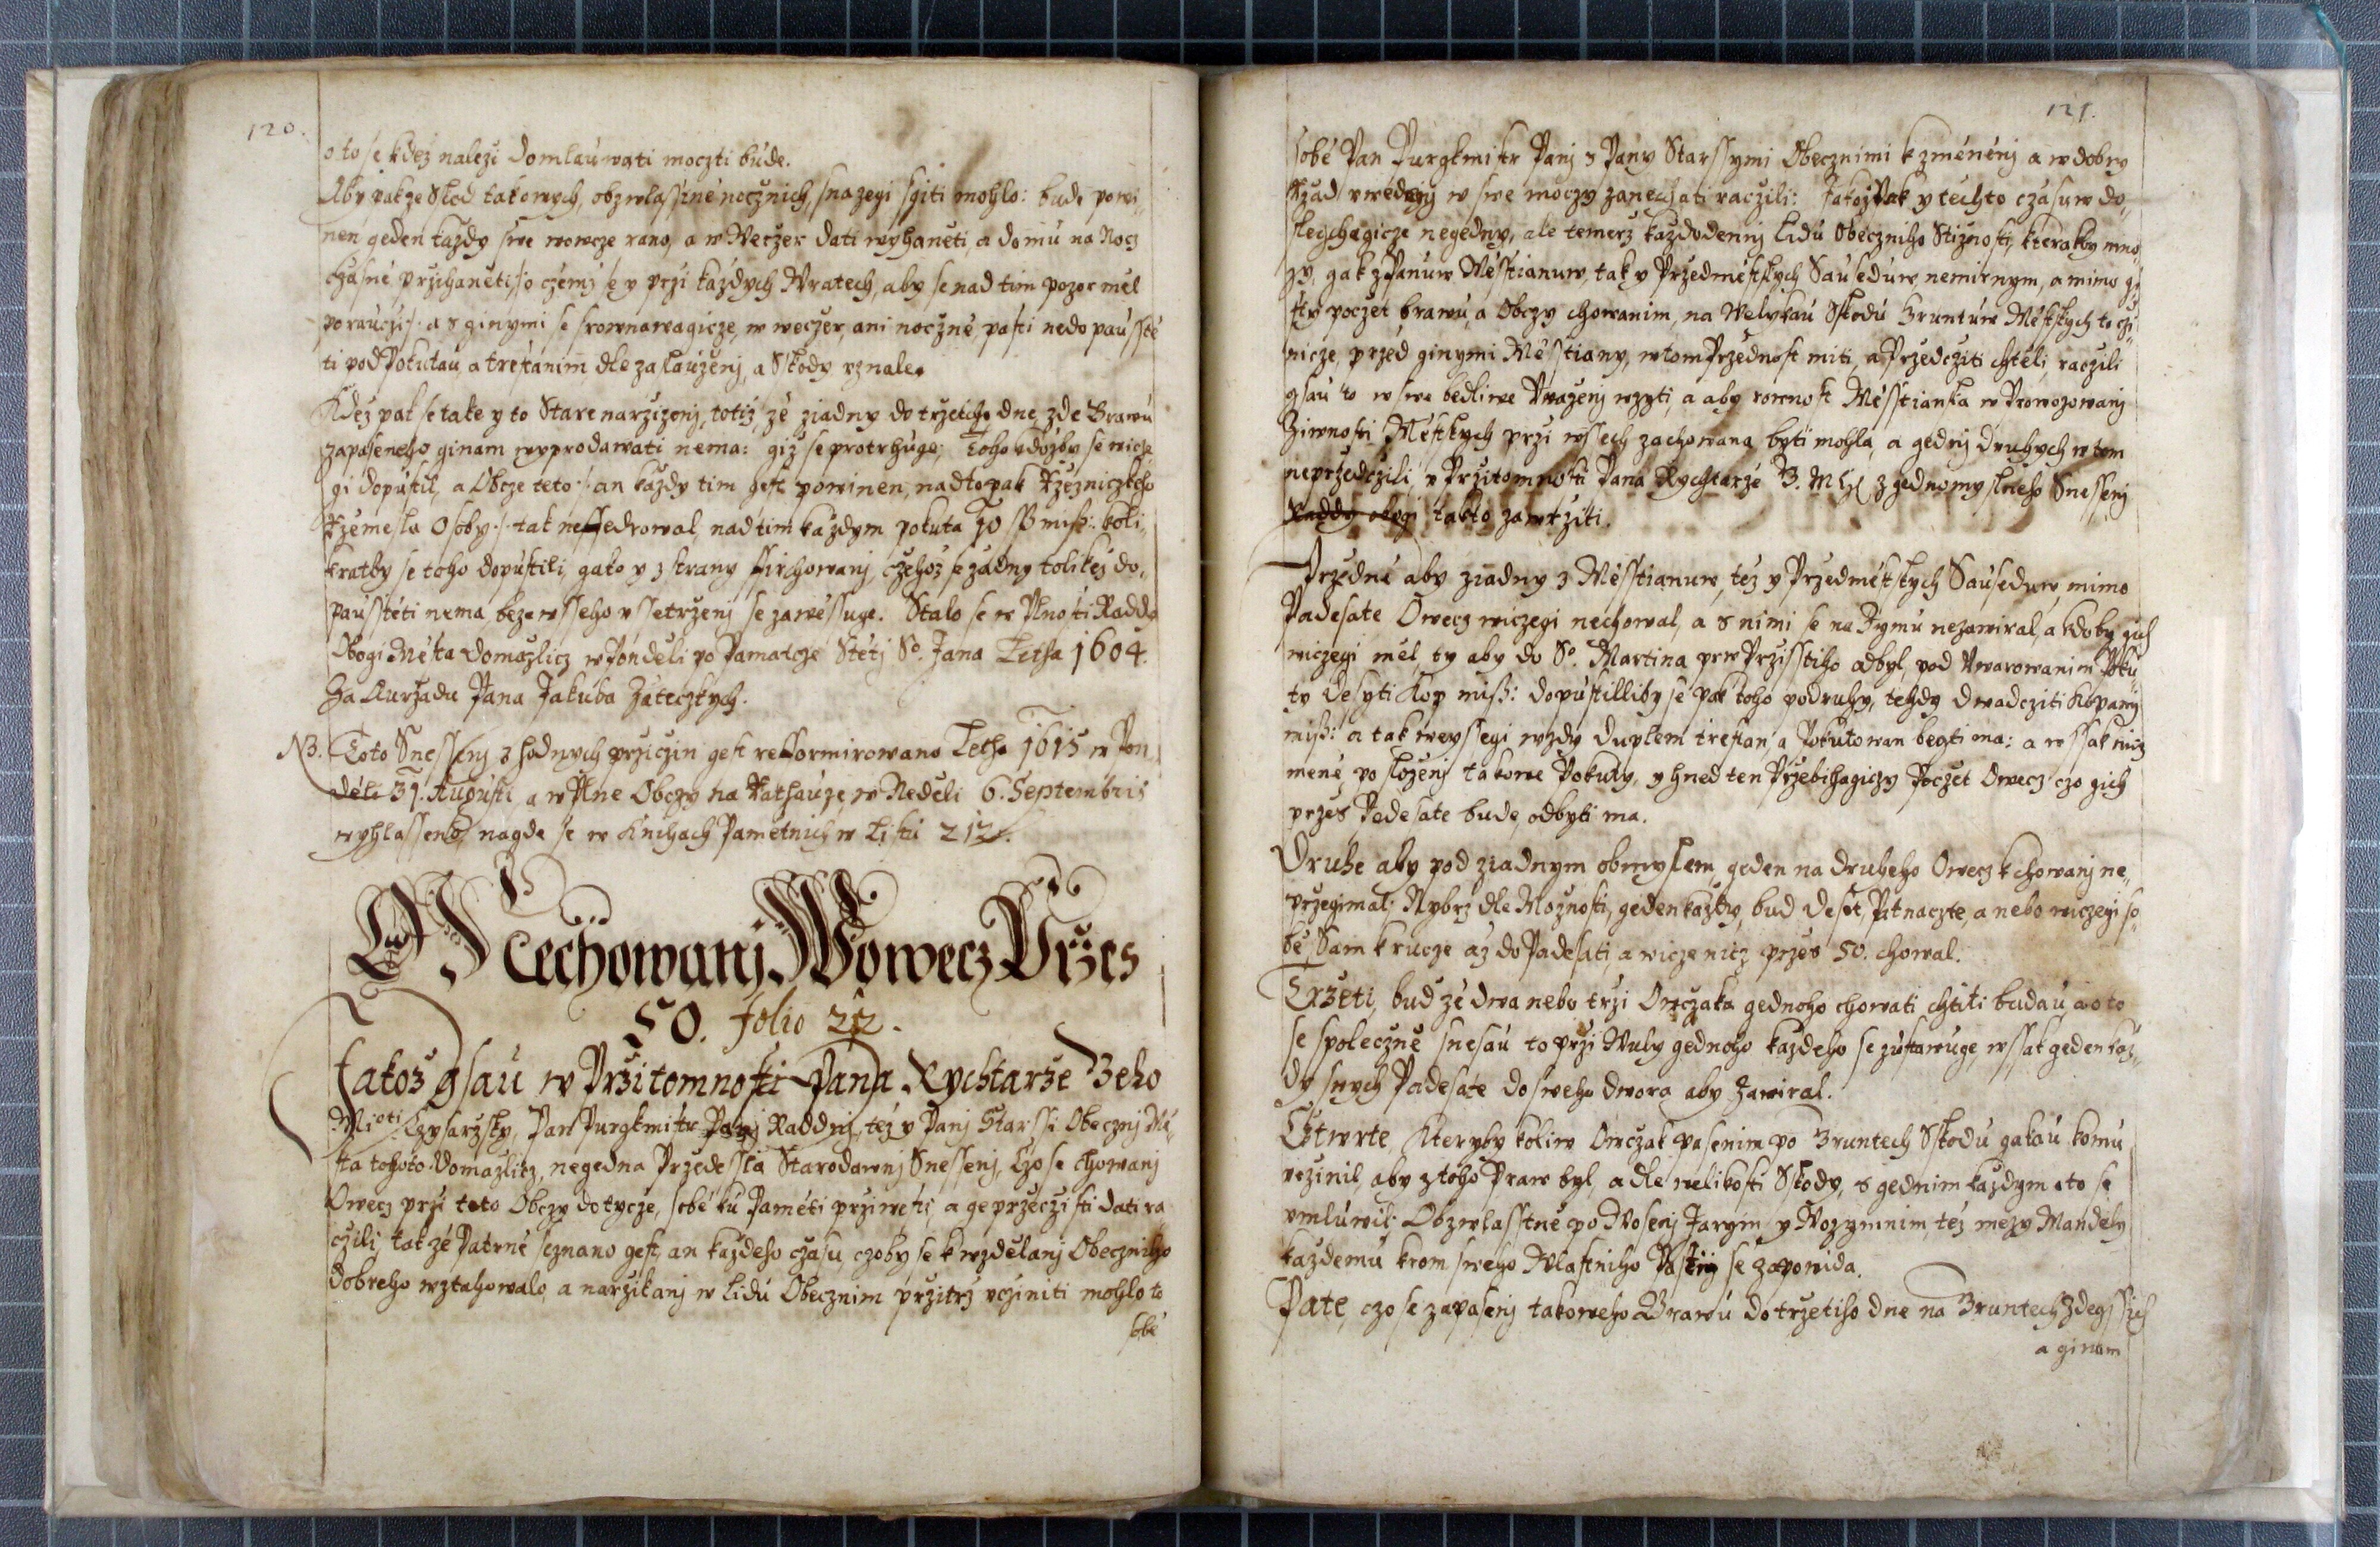 120.
o to se kdez nalezi domlauwati moczti bude.
Aby pak ze Skod takowych, obzwlasstne nocznich, snazegi sgiti mohlo: bude powi,,
nen geden kazdy swe wowcze rano, a w Weczer dati wyhaneti, a domu na Nocz
czasne, przihaneti, o czemz se y przi kazdych Wratech, aby se nad tim pozor mel
porauczi: a s ginymi se srownawagicze, w weczer, ani noczne pasti nedopausste
ti pod Pokutau a trestanim dle zaslauzenj, a Skody uznale.
Kdez pak se take y to Stare narzizenj, totiz, ze ziadny do trzetiho dne, zde Brawu
zapaseneho ginam wyprodawati nema: giz se protrhuge; Toho kdozby se wicze
gi dopustil, a Obcze teto :/: an kazdy tim gest powinen, nadto pak Rzezniczkeho
Rzemesla Osoby :/: tak neffedrowal, nad tim kazdym pokuta 10 ß miß: koli,,
kratby se toho dopustili, gako y z strany ffirchowanj, czehoz se zadny tolikez do,,
pausstieti nema beze wsseho ussetrzenj se zawessuge. Stalo se w Plnosti Raddy
Obogi Mesta Domazlicz w Pondeli po Pamatcze Stetj So. Jana Letha 1604.
Za Aurzadu Pana Jakuba Zateczkych.
NB. Toto Snessenj z hodnych przicin gest refformirowano Letha 1615 w Pon,,
deli 31. Augusti a w Plne Obczy na Rathauze w Nedeli 6. Septembris
wyhlasseno, nagde se w Knihach Pametnich w Listu 212.
O Nechowanj Wowecz Przes
50. folio 212.
Jakoz gsau w Przitomnosti Pana Rychtarze Geho
Mioti Czysarzsky, Pan Purgkmistr Panj Raddnj, tez y Panj Starssi Obecznj Me,,
sta tohoto Domazlicz, negedna Przedessla Starodawnj Snessenj, Czo se chowanj
Owecz przi teto Obczy dotycze, sobe ku Pameti przivesti, a ge przeczisti dati ra
czili, tak ze Patrne seznano gest, an kazdeho czasu, czoby se k wzdelanj Obeczniho
dobreho wztahowalo, a narzikanj w Lidu Obecznim przitrz ucziniti mohlo to
sobe
121.
sobe Pan Purgkmistr Panj z Pany Starssymi Obecznimi k zmenenj a w dobry
Rzad uwedenj w swe moczy zanechati raczili: Jakoz Pak y techto czasuw do,,
slechagicze negedny, ale temerz kazdodennj Lidu Obeczniho Stiznosti, kterakby mno
zy, gak z Panuw Messtianuw, tak y Przedmestskych Sausedu nemirnym, a mimo gi
sty poczet brawu, a Obczy chowanim, na Welykau Skodu Gruntuw Mestskych to czi
nicze, przed ginymi Messtiany, w tom Przednost miti, a Przedcziti chteli, raczili
gsau to w swe bedliwe Uwazenj wzyti, a aby rownost Messtianska w Prowozowanj
Ziwnosti Mestskych przi wssech zachowana byti mohla, a gednj druhych w tom
neprzedczili, v Przitomnosti Pana Rychtarze G. M Cz. z gednomyslneho Snessenj
Raddy obogi takto zawrziti.
Przedne aby ziadny z Messtianuw, tez y Przedmestskych Sauseduw, mimo
Padesate Owecz wiczegi nechowal, a s nimi se na Zymu nezawiral, a kdoby gich
wiczegi mel, ty aby do So. Martina prw Przisstiho odbyl, pod Uwarowanim Poku
ty desyti Kop miß: dopustilliby se pak toho podruhy, tehdy dwadcziti Kopamj
miß: a tak weyssegi wzdy duplem trestan, a Pokutowan beyti ma: a wssak nicz
mene po slozenj takowe Pokuty, y hned ten Przebihagiczy Poczet Owecz czo gich
przes Padesate bude, odbyti ma.
Druhe aby pod ziadnym obmyslem geden na druheho Owecz k chowanj ne,,
przegimal; Nybrz dle Moznosti, geden kazdy, bud deset, Patnaczte, a nebo wiczegi so,,
be, Sam k rucze az do Padesati, a wicze nicz przes 50. chowal.
Trzeti, bud ze dwa nebo trzi Owczaka gednoho chowati chtiti budau, a o to
se spoleczne snesau to przi Wuly gednoho kazdeho se zustawuge, wssak geden kaz,,
dy swych Padesate do sweho dwora aby Zawiral.
Cztwrte, Kteryby koliw Owczak pasenim po Gruntech Skodu gakau komu
uczinil, aby z toho Praw byl, a dle welikosti Skody, s gednim kazdym o to se
umluwil; Obzwlasstne po Wosenj Jarym y Wozymnim, tez mezy Mandely
kazdemu krom sweho Wlastniho Pastij se zapowida.
Pate, czo se zapasenj takoweho Brawu do trzetiho dne na Gruntech Zdegssich
a ginam